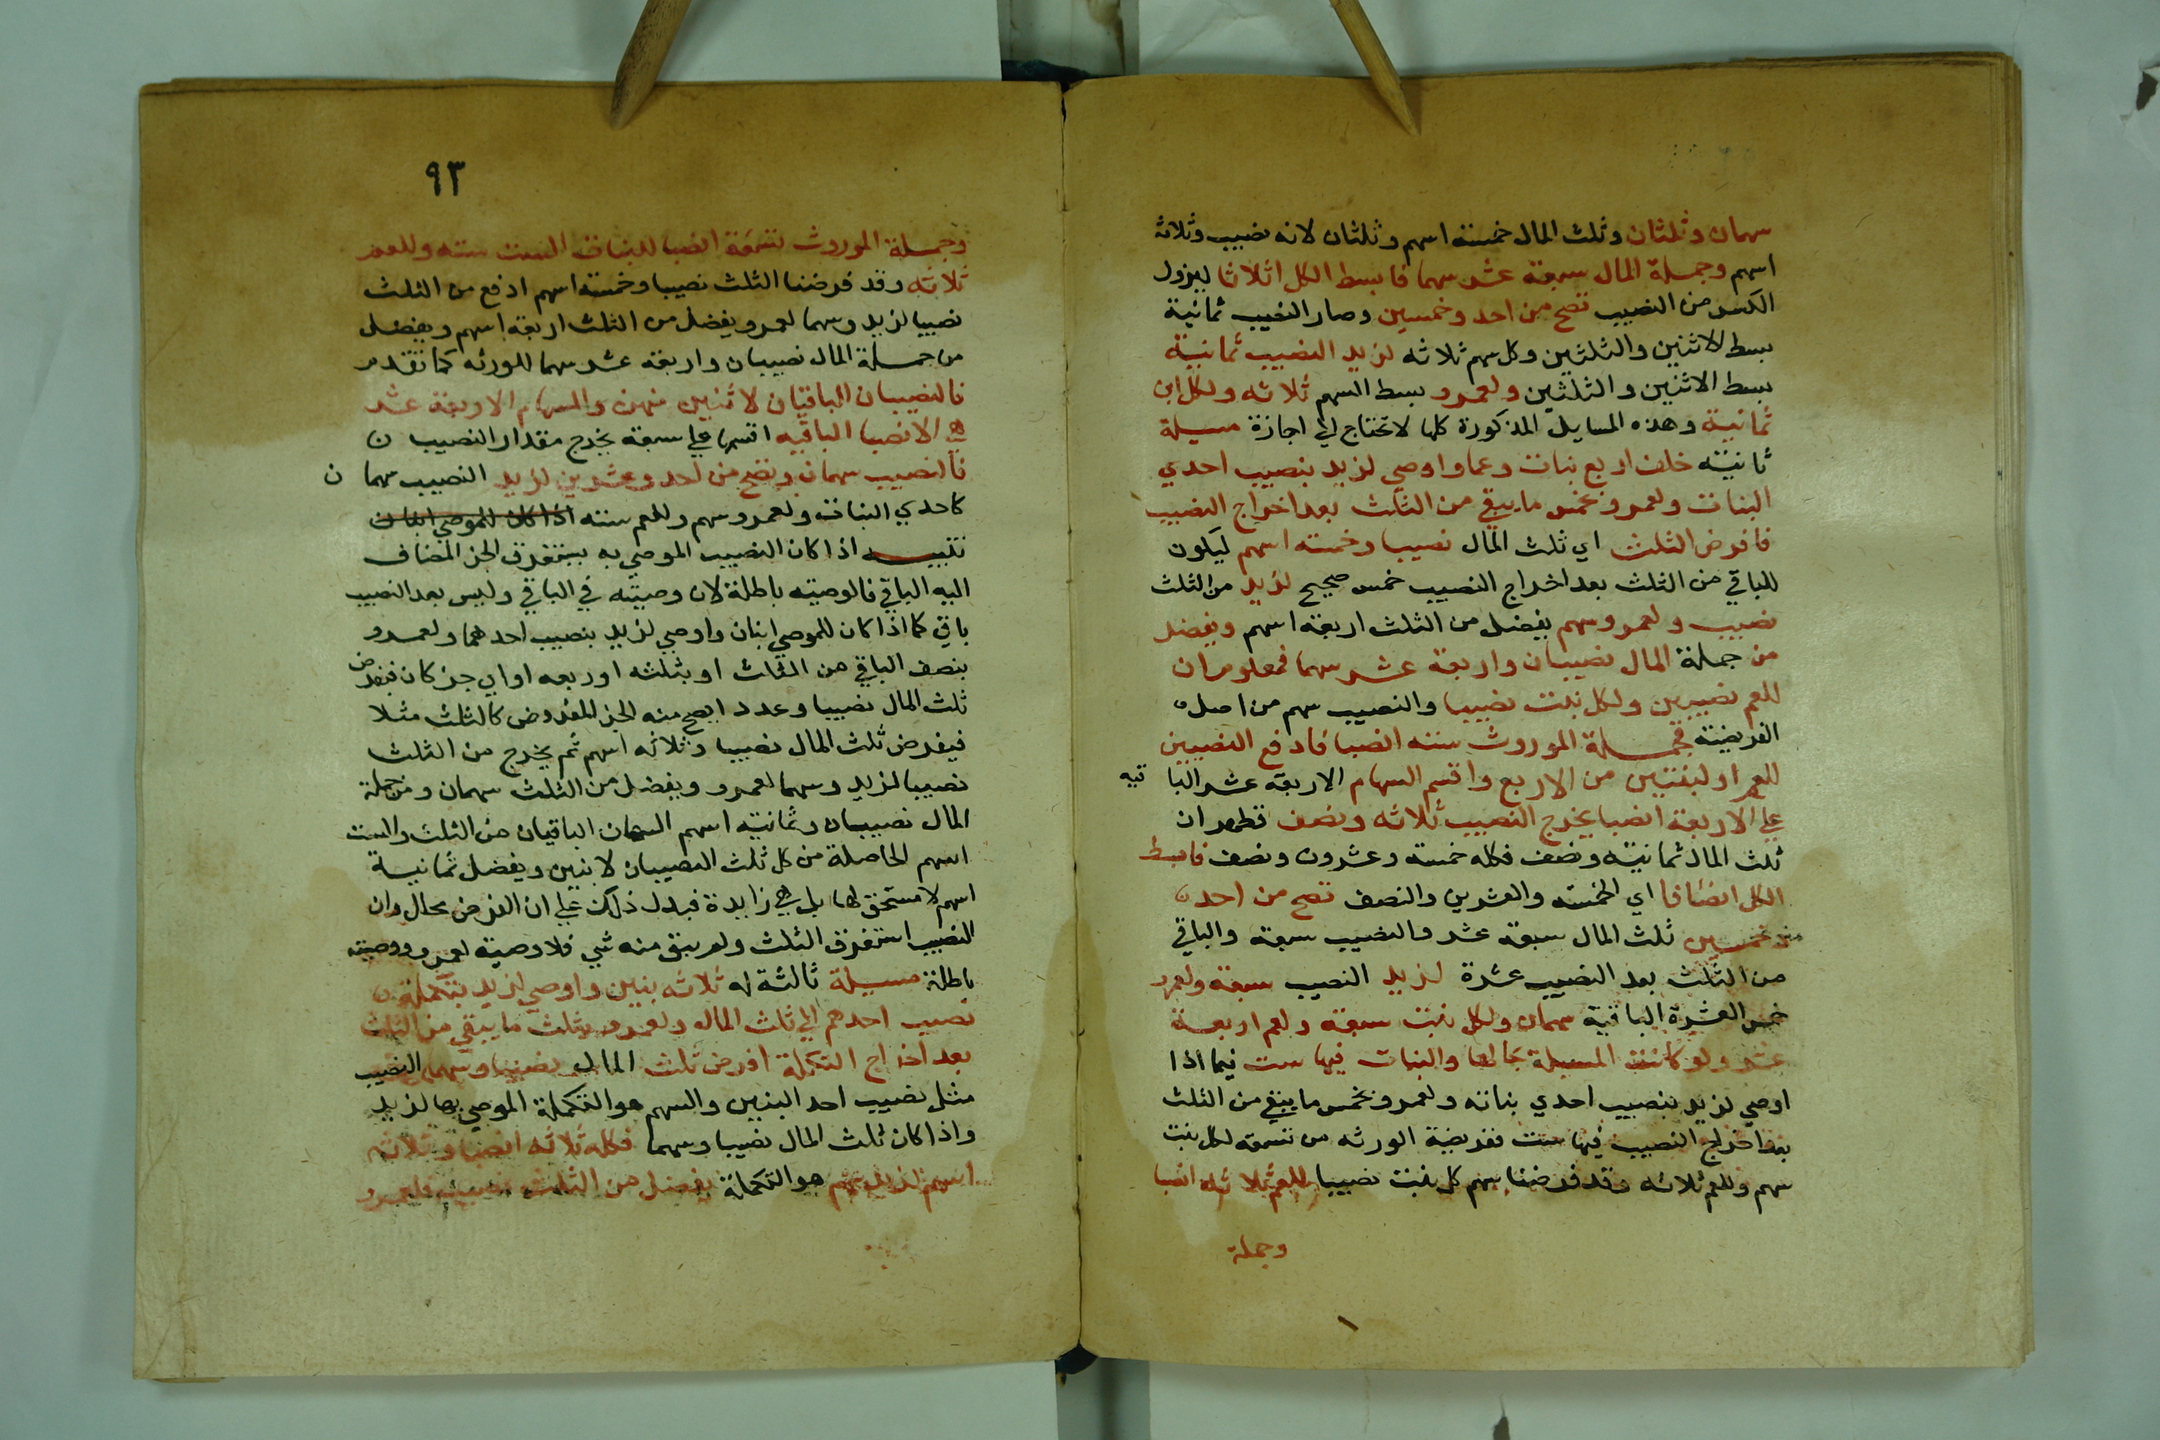 سهمان وثلثان وثلث المال خمسة اسهم وثلثان لانه نصيب وثلاثة
اسهم وجملة المال سبعة عشر سهما فابسط الكل اثلاثا ليزول
الكسر من النصيب تصح من احد وخمسين وصار النصيب ثمانية
بسط الاثنين والثلثين وكل سهم ثلاثه لزيد النصيب ثمانية
بسط الاثنين والثلثين ولعمرو بسط السهم ثلاثه ولكل ابن
ثمانية وهذه المسايل المذكورة كلها لا تحتاج الي اجازة مسيلة
ثانية خلف اربع بنات وعما واوصي لزيد بنصيب احدي
البنات ولعمرو بخمس ما يبقي من الثلث بعد اخراج النصيب
فافرض الثلث اي ثلث المال نصيبا وخمسه اسهم ليكون
للباقي من الثلث بعد اخراج النصيب خمس صحيح لزيد من الثلث
نصيب ولعمرو سهم يفضل من الثلث اربعة اسهم ويفضل
من جملة المال نصيبان واربعة عشر سهما فمعلوم ان
للعم نصيبين ولكل بنت نصيبا والنصيب سهم من اصل
الفريضة فجملة الموروث سته انصبا فادفع النصيبين
للعم او لبنتين من الاربع واقسم السهام الاربعة عشر البا قيه
علي الاربعة انصبا يخرج النصيب ثلاثه ونصف فظهر ان
ثلث المال ثمانية ونصف فكله خمسة وعشرون ونصف فابسط
الكل انصافا اي الخمسة والعشرين والنصف تصح من احد
وخمسين ثلث المال سبعة عشر والنصيب سبعة والباقي
من الثلث بعد النصيب عشرة لزيد النصيب سبعة ولعمرو
خمس العشرة الباقية سهمان ولكل بنت سبعه وللعم اربعة
عشر ولو كانت المسيلة بحالها والبنات فيها ست فيما اذا
اوصي لزيد بنصيب احدي بناته ولعمرو بخمس ما يبقي من الثلث
بعد اخراج النصيب فيها ست ففريضة الورثه من تسعة لكل بنت
سهم وللعم ثلاثه وقد فرضنا سهم كل بنت نصيبا للعم ثلاثه انصبا
وجملة
٩٣
وجملة الموروث تسعة انصبا للبنات الست سته وللعم
ثلاثه وقد فرضنا الثلث نصيبا وخمسه اسهم ادفع من الثلث
نصيبا لزيد وسهما لعمرو يفضل من الثلث اربعه اسهم ويفضل
من جملة المال نصيبان واربعه عشر سهما للورثه كما تقدم
فالنصيبان الباقيان لاثنين منهن والسهام الاربعة عشر
الانصبا الباقيه اقسمها علي سبعه يخرج مقدار النصيب ن
فالنصيب سهمان وتصح من احد وعشرين لزيد النصيب سهما ن
كاحدي البنات ولعمرو سهم وللعم سته اذا كان للموصي ابنان
تنبيه اذا كان النصيب الموصي به يستغرق الجز المضاف
اليه الباقي فالوصيه باطلة لان وصيته في الباقي وليس بعد النصيب
باقي كما اذا كان للموصي ابنان واوصي لزيد بنصيب احدهما ولعمرو
بنصف الباقي من الثلث او بثلثه او ربعه او اي جز كان فيفرض
ثلث المال نصيبا وعدد ايصح منه الجز المفروض كالثلث مثلا
فيفرض ثلث المال نصيبا وثلاثه اسهم ثم يخرج من الثلث
نصيبا لزيد وسهما لعمرو ويفضل من الثلث سهمان ومن جملة
المال نصيبان وثمانية اسهم السهمان الباقيان من الثلث والست
اسهم الحاصلة من كل ثلث النصيبان لابنين ويفضل ثمانية
اسهم لا مستحق لها بل هي زايدة فيدل ذلك علي ان الفرض محال وان
النصيب استغرق الثلث ولم يبق منه شي فلا وصيه لعمرو ووصيته
باطلة مسيلة ثالثة له ثلاثه بنين واوصي لزيد بتكملة
نصيب احدهم الي ثلث المال ولعمرو بثلث ما يبقي من الثلث
بعد اخراج التكملة افرض ثلث المال نصيبا وسهما النصيب
مثل نصيب احد البنين والسهم هو التكملة الموصي بها لزيد
واذا كان ثلث المال نصيبا وسهما فكله ثلاثه انصبا وثلاثه
اسهم لزيد سهم هو التكملة يفضل من الثلث نصيب فلعمرو